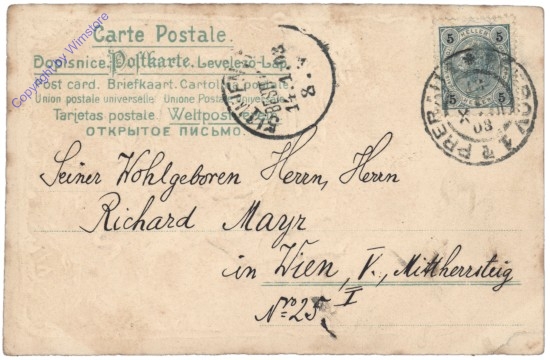 Carte Postale.
Dopisnice. Postkarte. Levelező-Lap
Post card. Briefkaart. Cartolina postale.
Union postale universelle. Unione Postale Universale
Tarjetas postales. Weltpostverein
ОТКРЫТОЕ ПИСЬМО.
Copyright by Wimstore
WIEN
5 HELLER 5
5 5
PRERAU
03
Seiner Wohlgeboren Herrn, Herrn
Richard Mayr
in Wien, V., Mittersteig
Nro 25 I